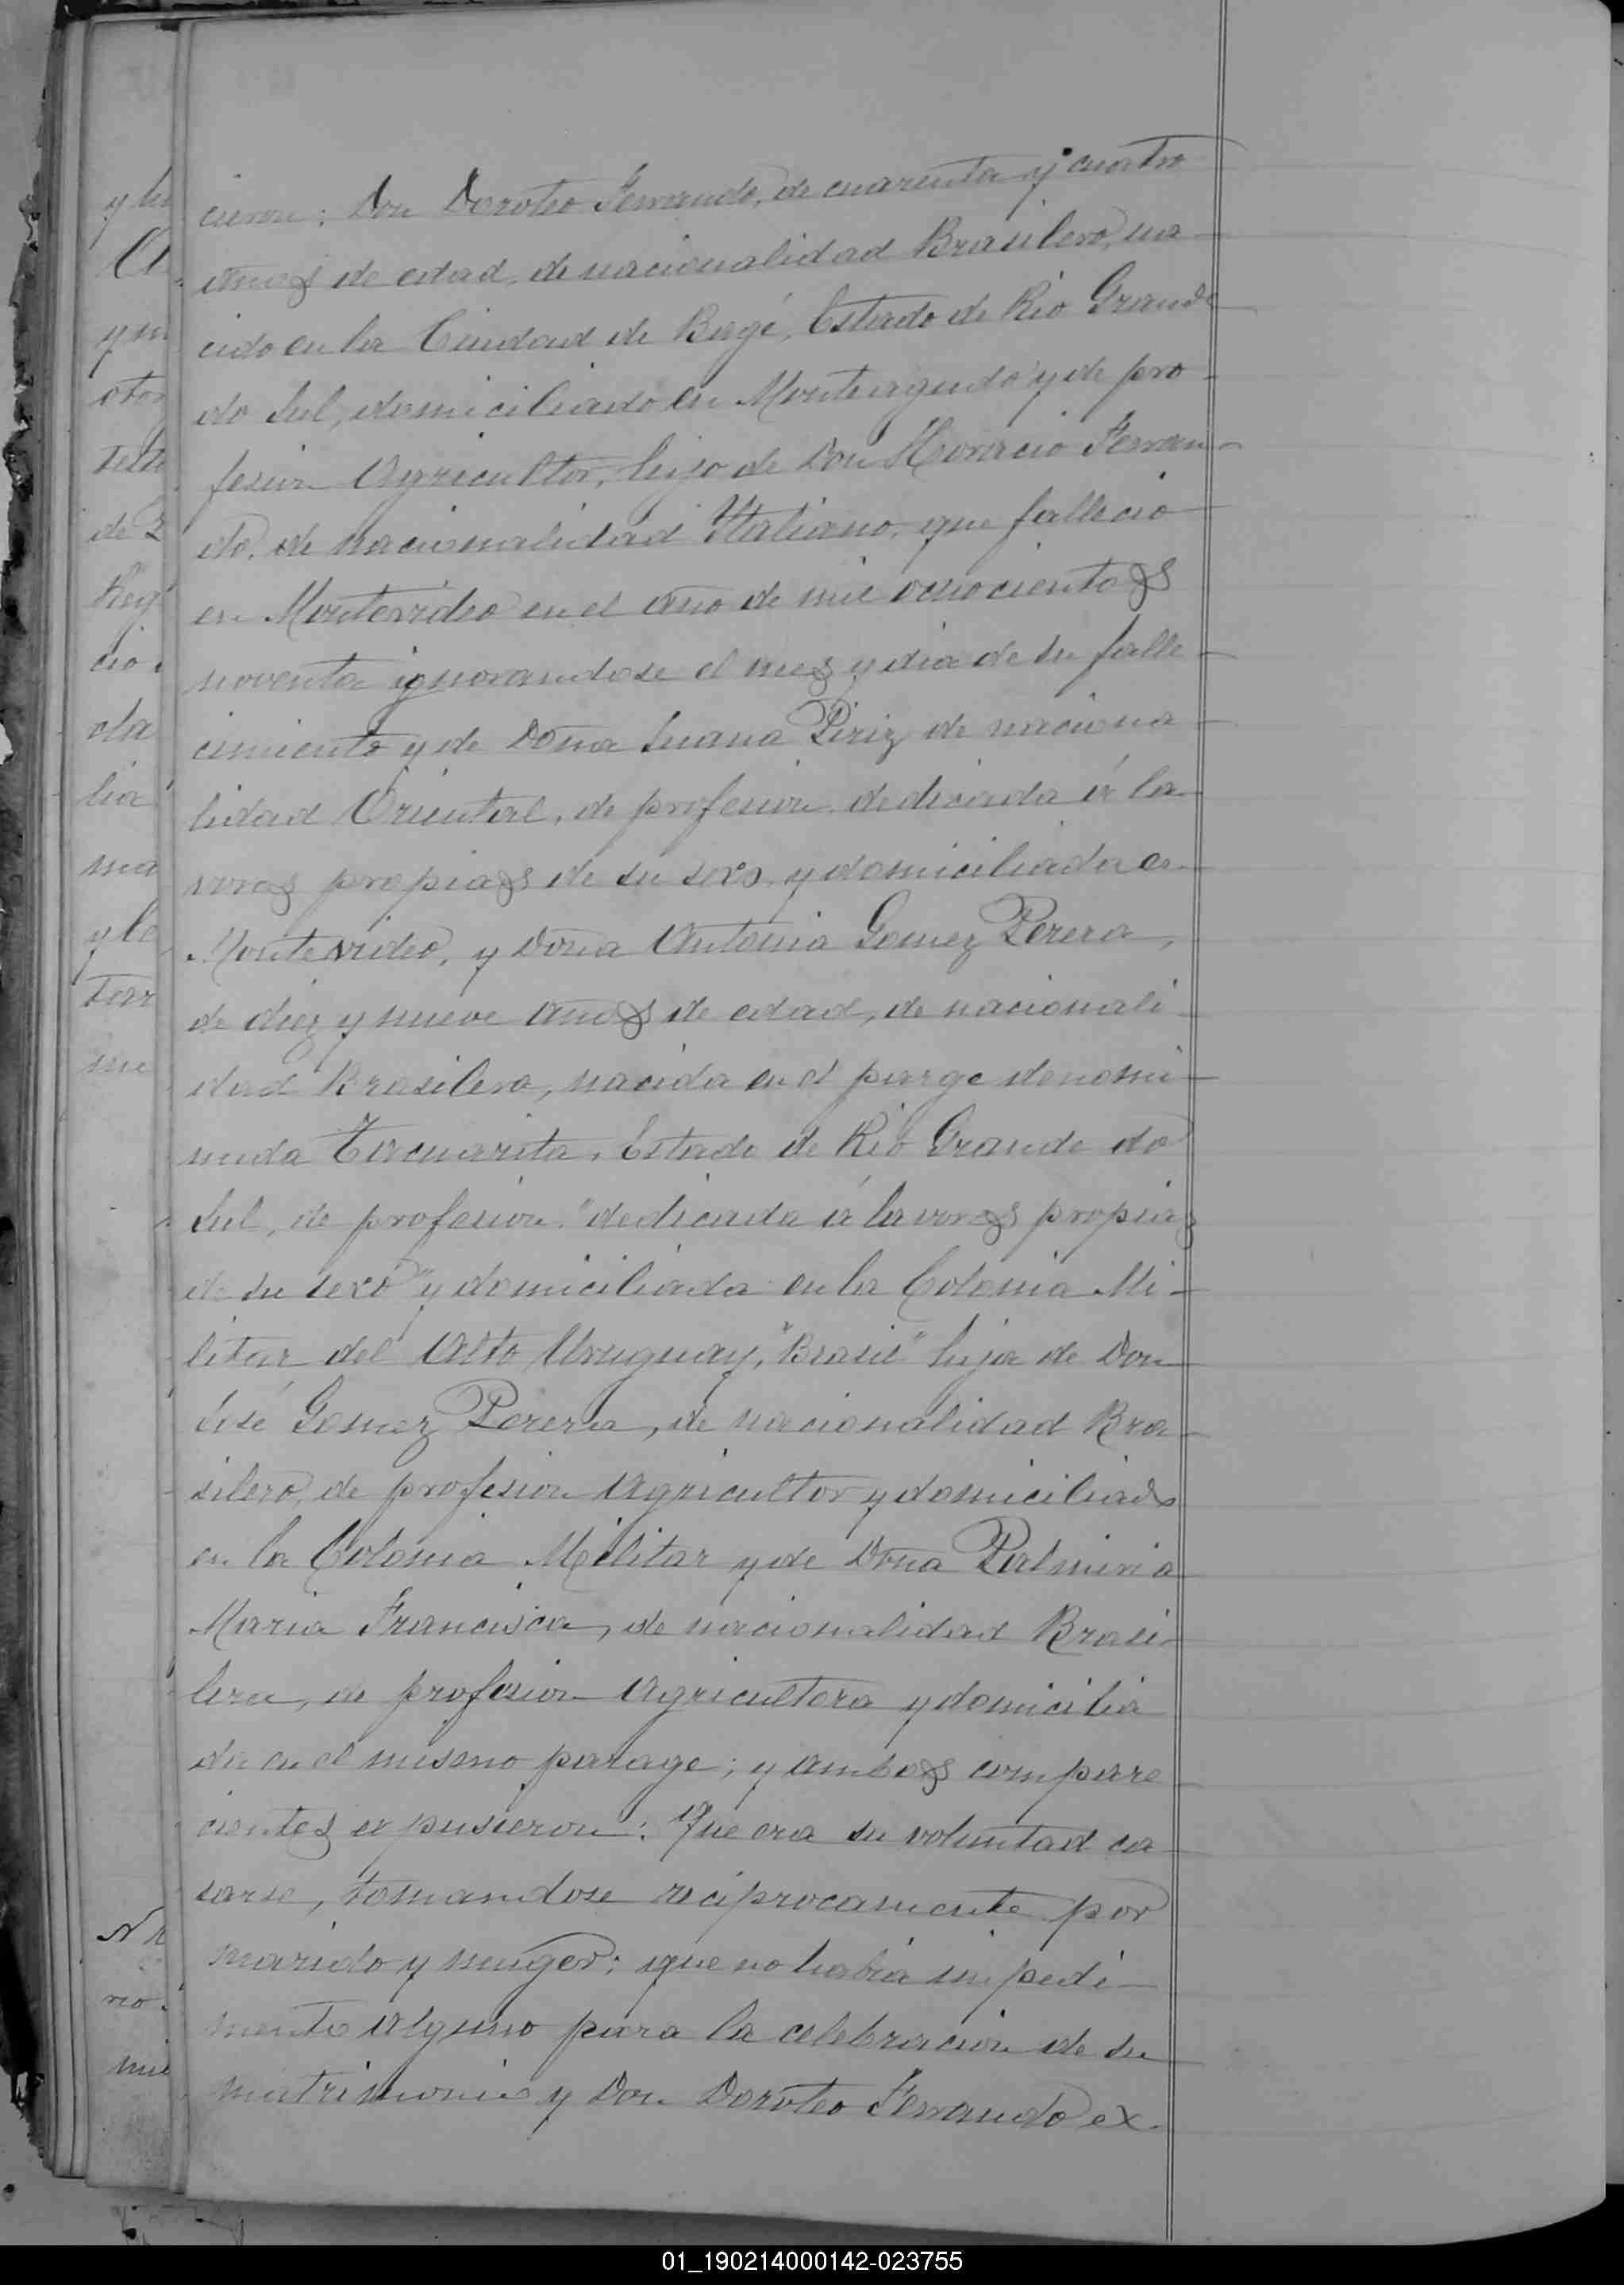 cieron: Don Doroteo Ferrando, de cuarenta y cuatro
años de edad, de nacionalidad Brasilero, na-
cido en la Ciudad de Bagé, Estado de Rio Grande
do Sul, domiciliado en Monteagudo y de pro-
fesion Agricultor, hijo de Don Horacio Ferran-
do, de nacionalidad Italiano, que falleció
en Montevideo en el año de mil ochocientos
noventa ignorandose el mes y dia de su falle-
cimiento y de Doña Juana Piriz de naciona-
lidad Oriental, de profesion dedicada á la-
vores propias de su sexo y domiciliada en
Montevideo, y Doña Antonia Gomez Perera,
de diez y nueve años de edad, de nacionali-
dad Brasilera, nacida en el parage denomi-
nada Tacuarita, Estado de Rio Grande do
Sul, de profesion "dedicada á lavores propias
de su sexo" y domiciliada en la Colonia Mi-
litar del Alto Uruguay, "Brasil" hija de Don
José Gomez Perera, de nacionalidad Bra-
silero, de profesion Agricultor y domiciliado
en la Colonia Militar y de Doña Palmira
Maria Francisca, de nacionalidad Brasi-
lera, de profesion Agricultora y domicilia
da en el mismo parage; y ambos compare-
cientes expusieron: Que era su voluntad ca-
sarse, tomandose reciprocamente por
marido y muger; que no habia impedi-
mento alguno para la celebracion de su
matrimonio y Don Doroteo Ferrando ex-
01_190214000142-023755